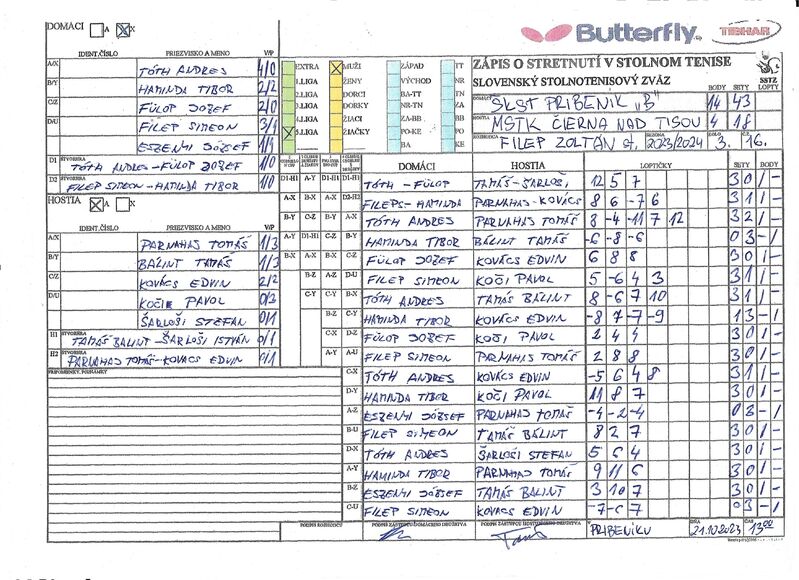 DOMÁCI A X X
IDENT.ČÍSLO PRIEZVISKO A MENO V/P
A/X TÓTH ANDRES 4/0
B/Y HAMINDA TIBOR 2/2
C/Z FÜLOP JOŽEF 2/0
D/U FILEP SIMEON 3/1
ESZENYI JÓZSEF 1/1
D1 ŠTVORHRA TÓTH ANDRES-FÜLOP JOZEF 1/0
D2 ŠTVORHRA FILEP SIMEON-HAMINDA TIBOR 1/0
HOSTIA A X
IDENT.ČÍSLO PRIEZVISKO A MENO V/P
A/X PARNAHAS TOMÁŠ 1/3
B/Y BÁLINT TAMÁŠ 1/3
C/Z KOVÁCS EDVIN 2/2
D/U KOČI PAVOL 0/3
ŠARLOŠI STEFAN 0/1
H1 ŠTVORHRA TAMÁŠ BALINT-ŠARLOŠI IŠTVÁN 0/1
H2 ŠTVORHRA PARNAHAS TOMÁŠ-KOVÁCS EDVIN 0/1
PRIPOMIENKY, POZNÁMKY
EXTRA MUŽI ZÁPAD TT
1.LIGA ŽENY VÝCHOD NR
2.LIGA DORCI BA-TT TN
3.LIGA DORKY NR-TN ZA
4.LIGA ŽIACI ZA-BB BB
5.LIGA ŽIAČKY PO-KE PO
BA KE
Butterfly TIBHAR
ZÁPIS O STRETNUTÍ V STOLNOM TENISE
SLOVENSKÝ STOLNOTENISOVÝ ZVÄZ SSTZ
BODY SETY LOPTY
DOMÁCI ŠKST PRIBENIK "B" 14 43
HOSTIA MSTK ČIERNA NAD TISOU 4 18
ROZHODCA FILEP ZOLTÁN st. SEZÓNA 2023/2024 KOLO 3. Č. 16.
DOMÁCI HOSTIA LOPTIČKY SETY BODY
TÓTH - FÜLOP TAMÁŠ-ŠARLOŠI 12 5 7 3 0 1 -
FILEPS-HAMINDA PARNAHAS-KOVÁCS 8 6 -7 6 3 1 1 -
TÓTH ANDRES PARNAHAS TOMÁŠ 8 -4 -11 7 12 3 2 1 -
HAMINDA TIBOR BÁLINT TAMÁŠ -6 -8 -6 0 3 - 1
FÜLOP JOZEF KOVÁCS EDVIN 6 8 8 3 0 1 -
FILEP SIMEON KOČI PAVOL 5 -6 4 3 3 1 1 -
TÓTH ANDRES TAMAŠ BÁLINT 8 -6 7 10 3 1 1 -
HAMINDA TIBOR KOVÁCS EDVIN -8 7 -7 -9 1 3 - 1
FÜLOP JOZEF KOČI PAVOL 2 4 4 3 0 1 -
FILEP SIMEON PARNAHAS TOMÁŠ 2 8 8 3 0 1 -
C-X TÓTH ANDRES KOVÁCS EDVIN -5 6 4 8 3 1 1 -
D-Y HAMINDA TIBOR KOČI PAVOL 11 8 7 3 0 1 -
A-Z ESZENYI JÓZSEF PARNAHAS TOMÁŠ -4 -2 -4 0 3 - 1
B-U FILEP SIMEON TAMÁŠ BÁLINT 8 2 7 3 0 1 -
D-X TÓTH ANDRES ŠARLOŠI STEFAN 5 6 4 3 0 1 -
A-Y HAMINDA TIBOR PARNAHAS TOMÁŠ 9 11 6 3 0 1 -
B-Z ESZENYI JÓZSEF TAMÁŠ BALINT 3 10 7 3 0 1 -
C-U FILEP SIMEON KOVÁCS EDVIN -7 -6 7 0 3 - 1
PODPIS ROZHODCU PODPIS ZÁSTUPCU DOMÁCEHO DRUŽSTVA PODPIS ZÁSTUPCU HOSŤUJÚCEHO DRUŽSTVA V PRIBENIKU DŇA 21.10.2023 ČAS 13.00